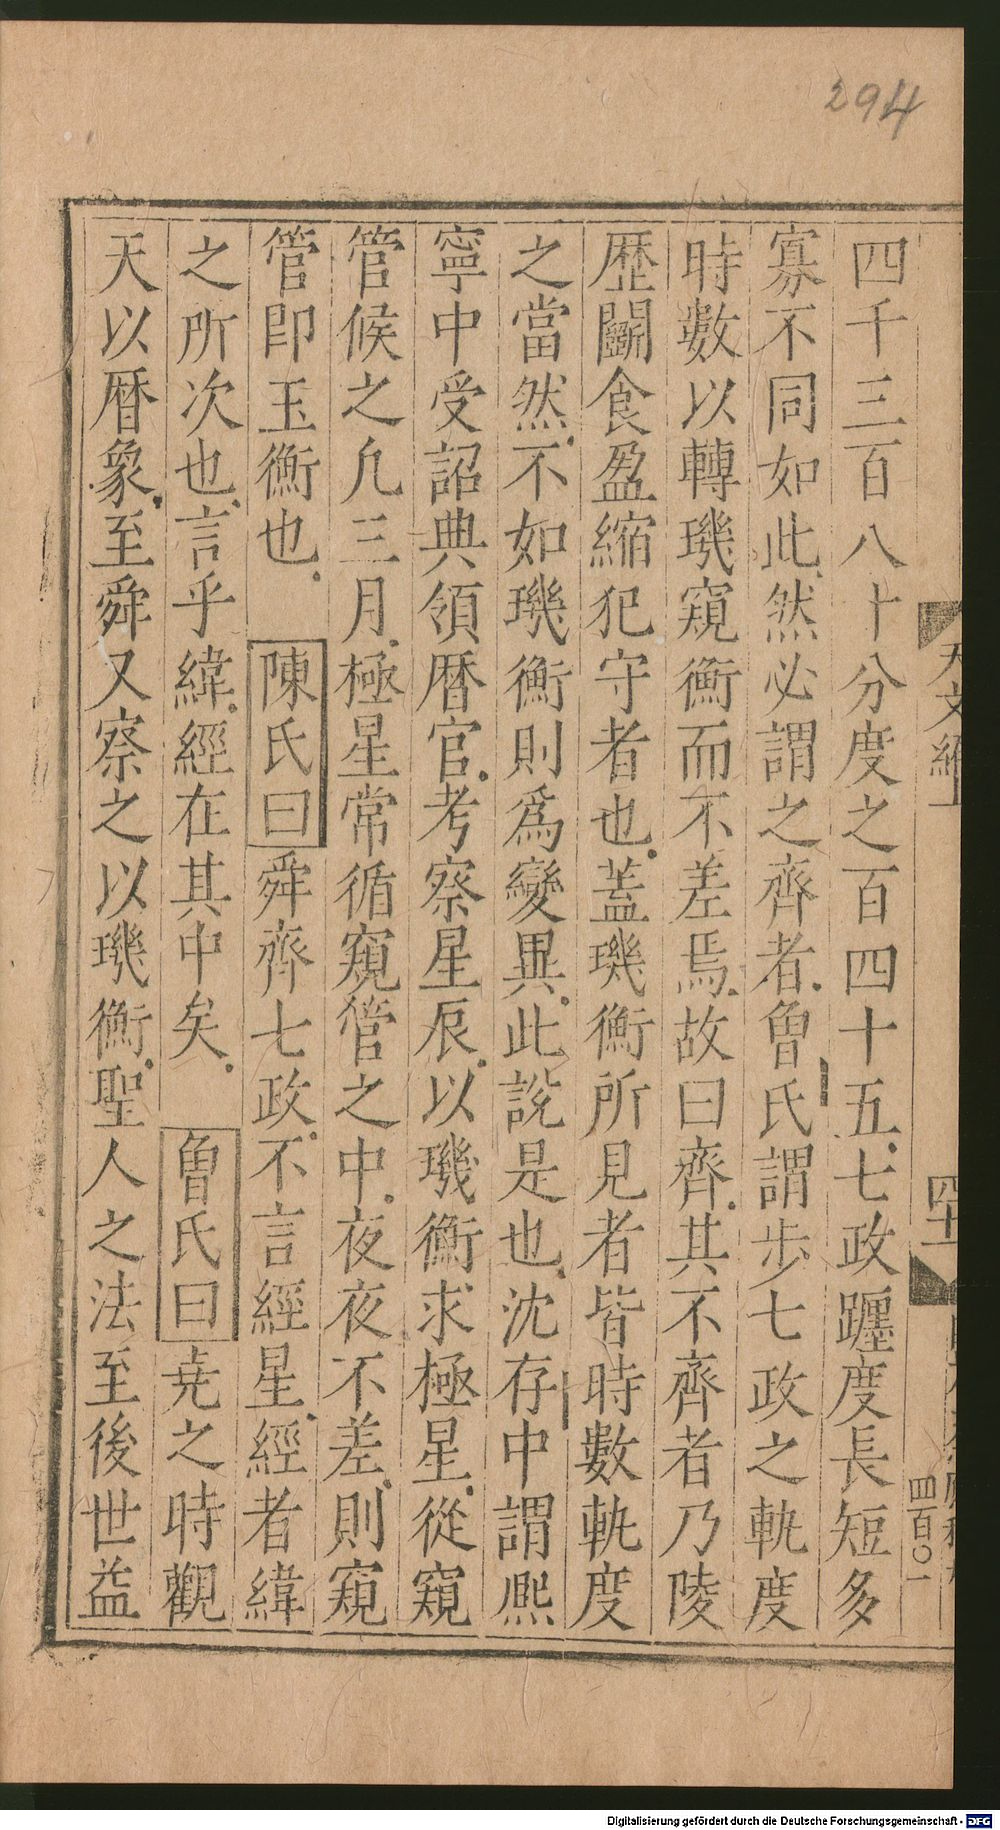 294
四千三百八十分度之百四十五七政躔度長短多
寡不同如此然必謂之齊者魯氏謂步七政之軌度
時數以轉璣窺衡而不差焉故曰齊其不齊者乃陵
歴鬭食盈縮犯守者也蓋璣衡所見者皆時數軌度
之當然不如璣衡則爲變異此說是也沈存中謂熈
寧中受詔典領暦官考察星辰以璣衡求極星從窺
管候之凡三月極星常循窺管之中夜夜不差則窺
管即玉衡也 陳氏曰舜齊七政不言經星經者緯
之所次也言乎緯經在其中矣 魯氏曰堯之時觀
天以暦象至舜又察之以璣衡聖人之法至後世益
天文編上
四十一
四百〇一
Digitalisierung gefördert durch die Deutsche Forschungsgemeinschaft - DFG